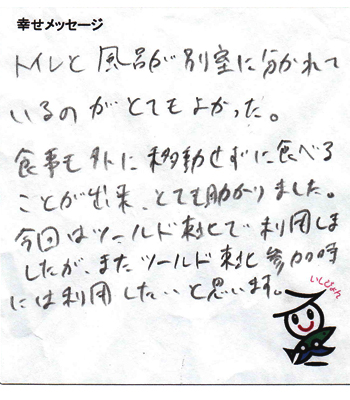 幸せメッセージ
トイレと風呂が別室に分かれて
いるのがとてもよかった。
食事も外に移動せずに食べる
ことが出来、とても助かりました。
今回はツールド東北で利用しま
したが、またツールド東北参加時
には利用したいと思います。
いしぴょん